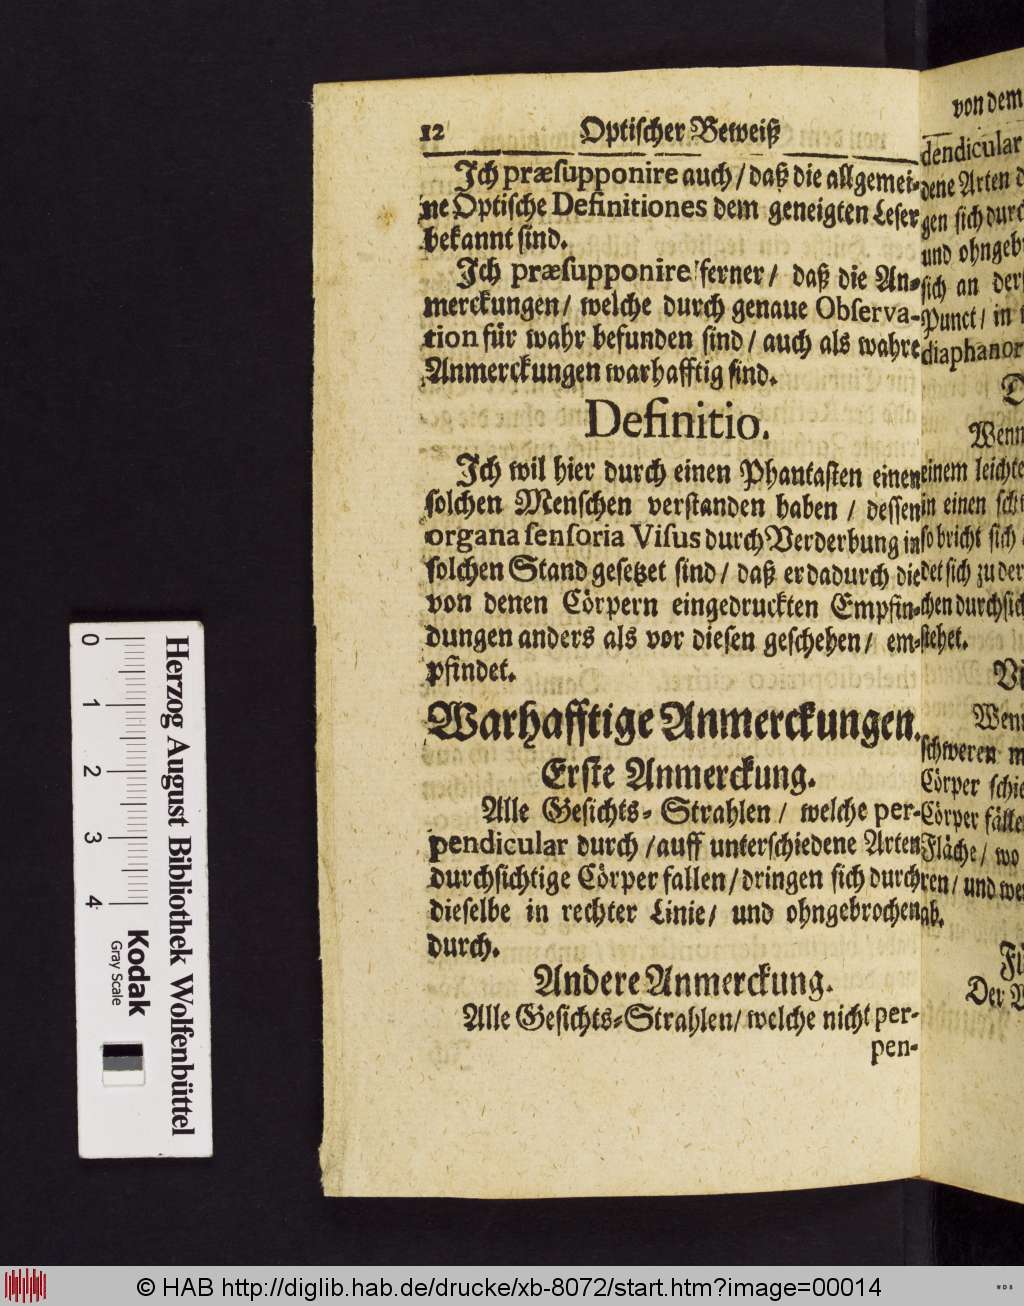 12 Optischer Beweiß
Ich præsupponire auch / daß die allgemei-
ne Optische Definitiones dem geneigten Leser
bekannt sind.
Ich præsupponire ferner / daß die An-
merckungen / welche durch genaue Observa-
tion für wahr befunden sind / auch als wahre
Anmerckungen warhafftig sind.
Definitio.
Ich wil hier durch einen Phantasten einen
solchen Menschen verstanden haben / dessen
organa sensoria Visus durch Verderbung in
solchen Stand gesetzet sind / daß er dadurch die
von denen Cörpern eingedruckten Empfin-
dungen anders als vor diesen geschehen / em-
pfindet.
Warhafftige Anmerckungen.
Erste Anmerckung.
Alle Gesichts-Strahlen / welche per-
pendicular durch / auff unterschiedene Arten
durchsichtige Cörper fallen / dringen sich durch
dieselbe in rechter Linie / und ohngebrochen
durch.
Andere Anmerckung.
Alle Gesichts-Strahlen / welche nicht per-
pen-
von dem
dendicular
dene Arten
gen sich durch
und ohngeb
sich an der
Punct / in
diaphanor
Wenn
einem leichte
in einen
so bricht sich
det sich zu der
chen durchsich
stehet.
Wenn
schweren
Cörper schie
Cörper fälle
Fläche / wo
ren / und we
ab.
Der
0 1 2 3 4
Kodak
Gray Scale
Herzog August Bibliothek Wolfenbüttel
© HAB http://diglib.hab.de/drucke/xb-8072/start.htm?image=00014